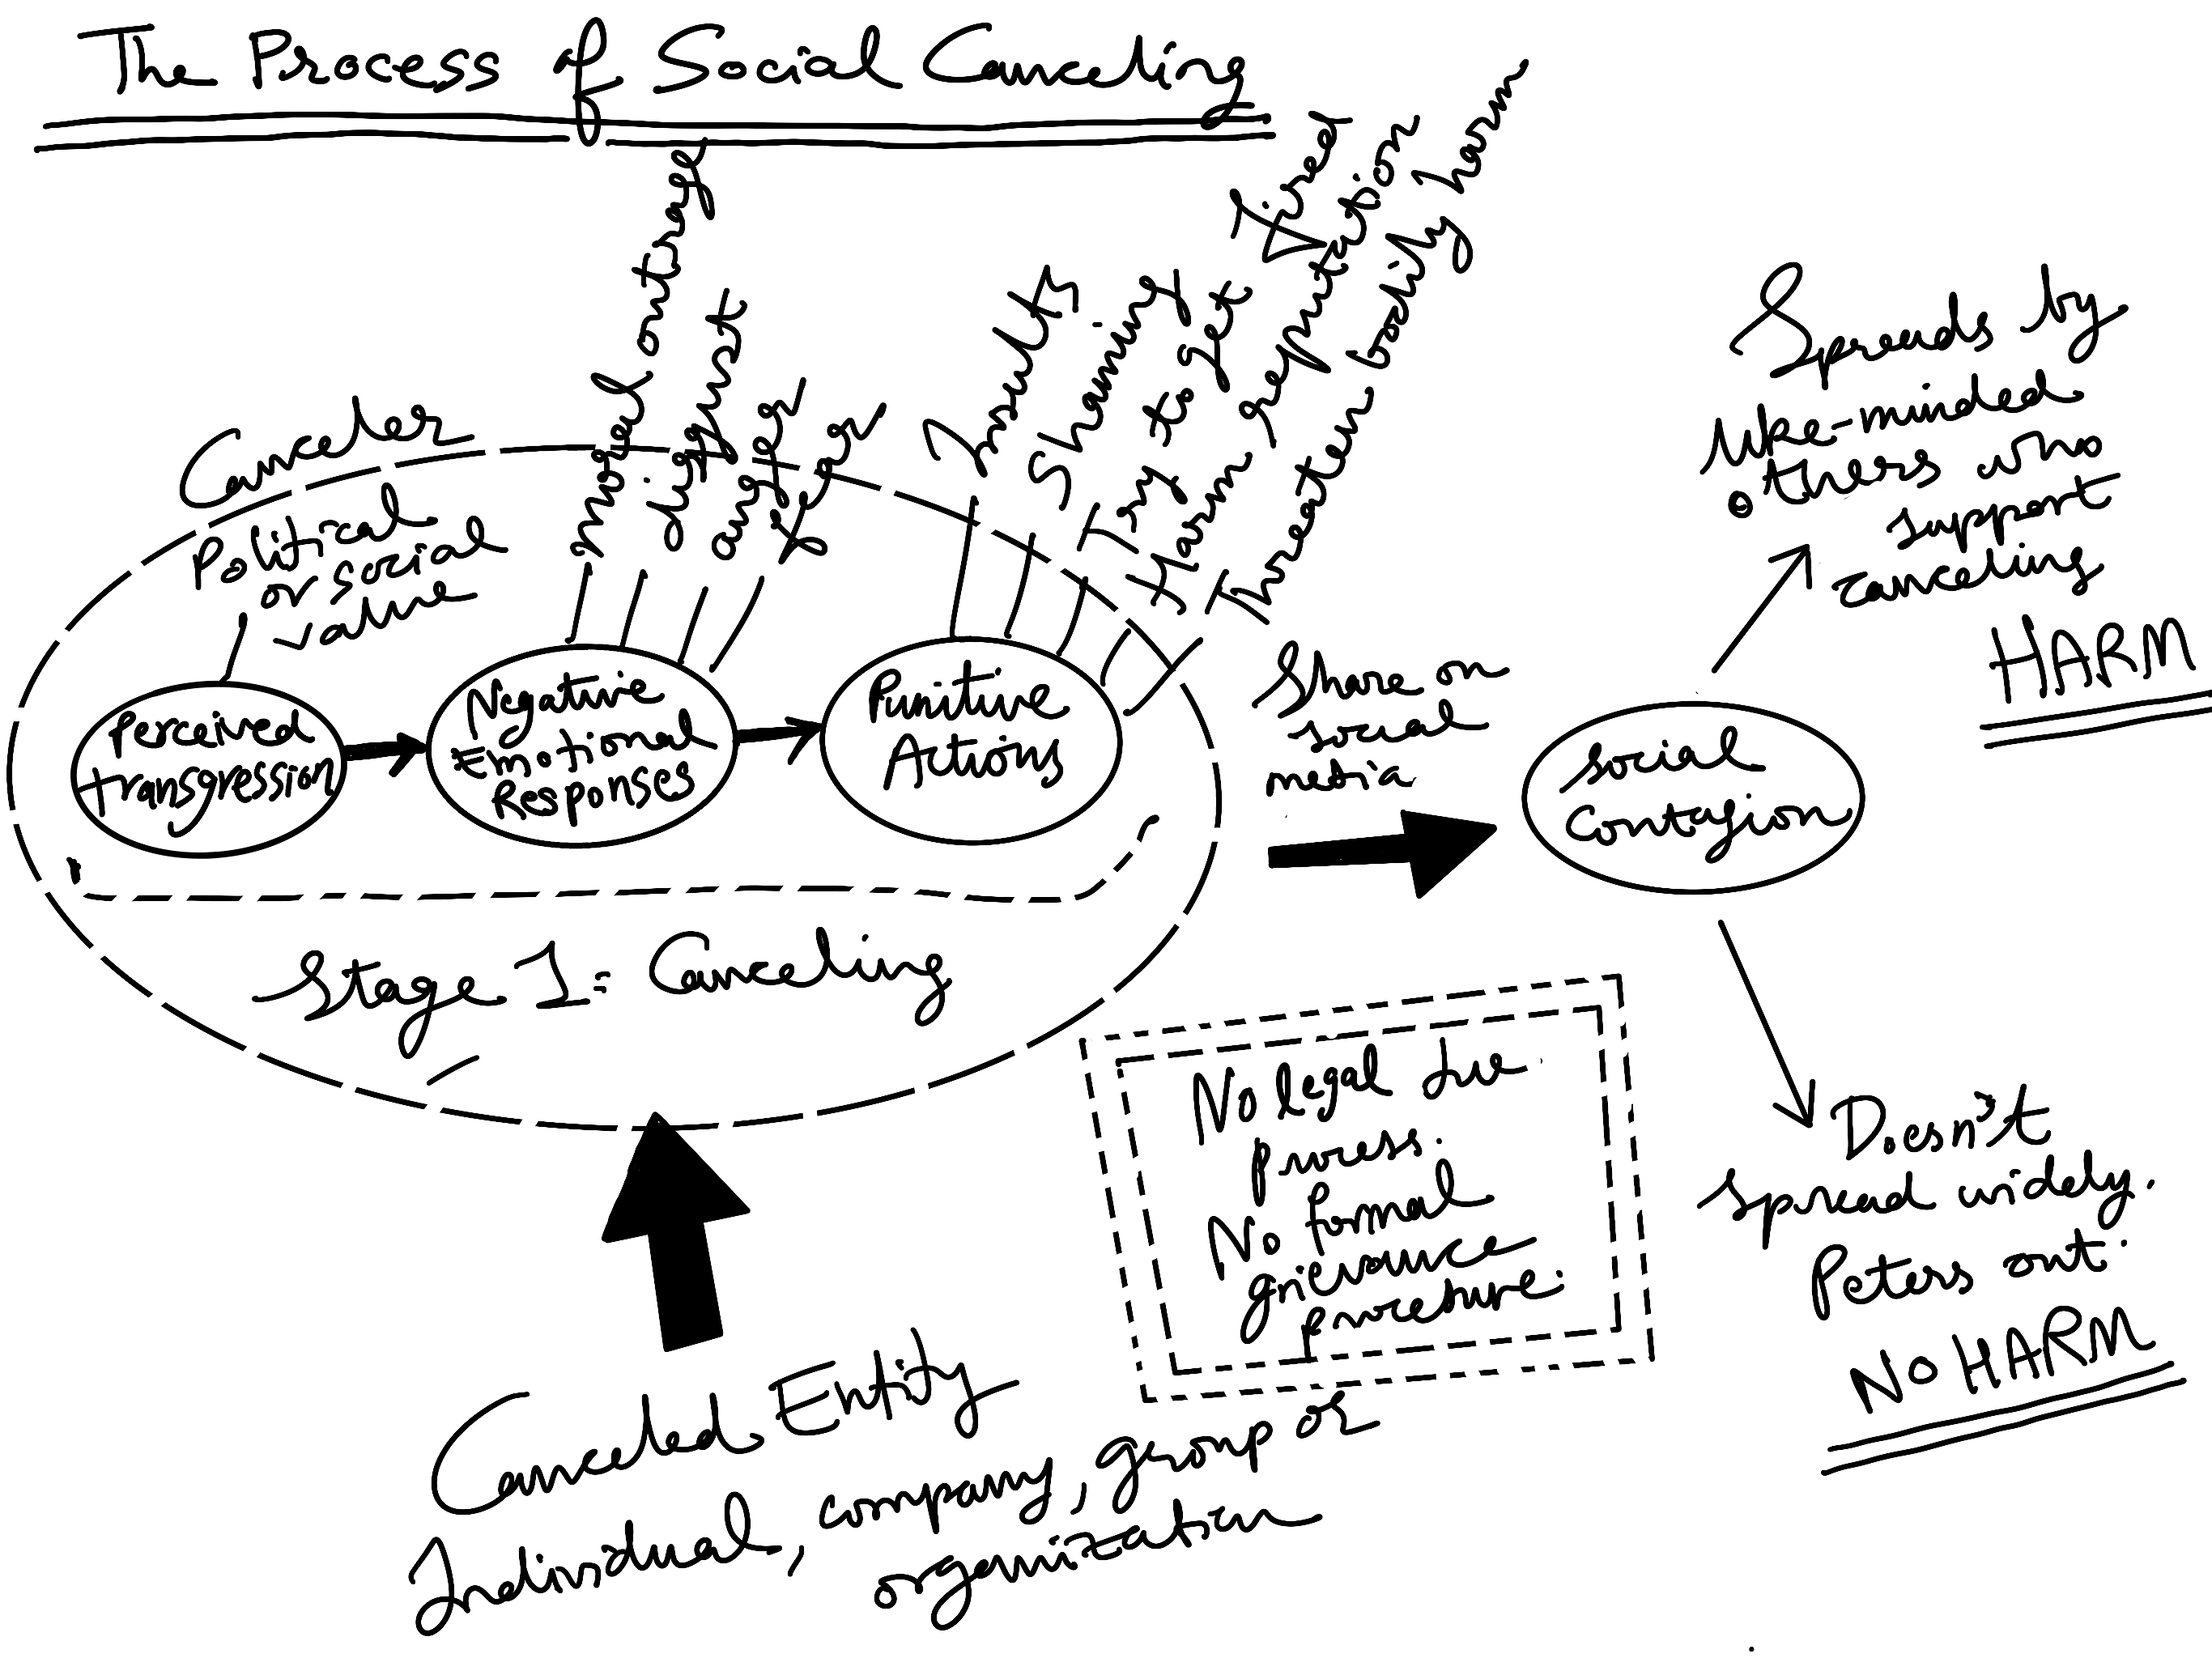 The Process of Social Canceling
Canceler
Political
or social
value
moral outrage
disgust
anger
fear
Insults
Shaming
Try to get fired
Harm reputation
Threaten bodily harm
Perceived
transgression
Negative
Emotional
Responses
Punitive
Actions
Stage 1: Canceling
Share on
social
media
Social
Contagion
Spreads by
like-minded
others who
support
canceling
HARM
Doesn't
spread widely.
Peters out.
No HARM
No legal due
process.
No formal
grievance
procedure.
Canceled Entity
Individual, company, group or
organization